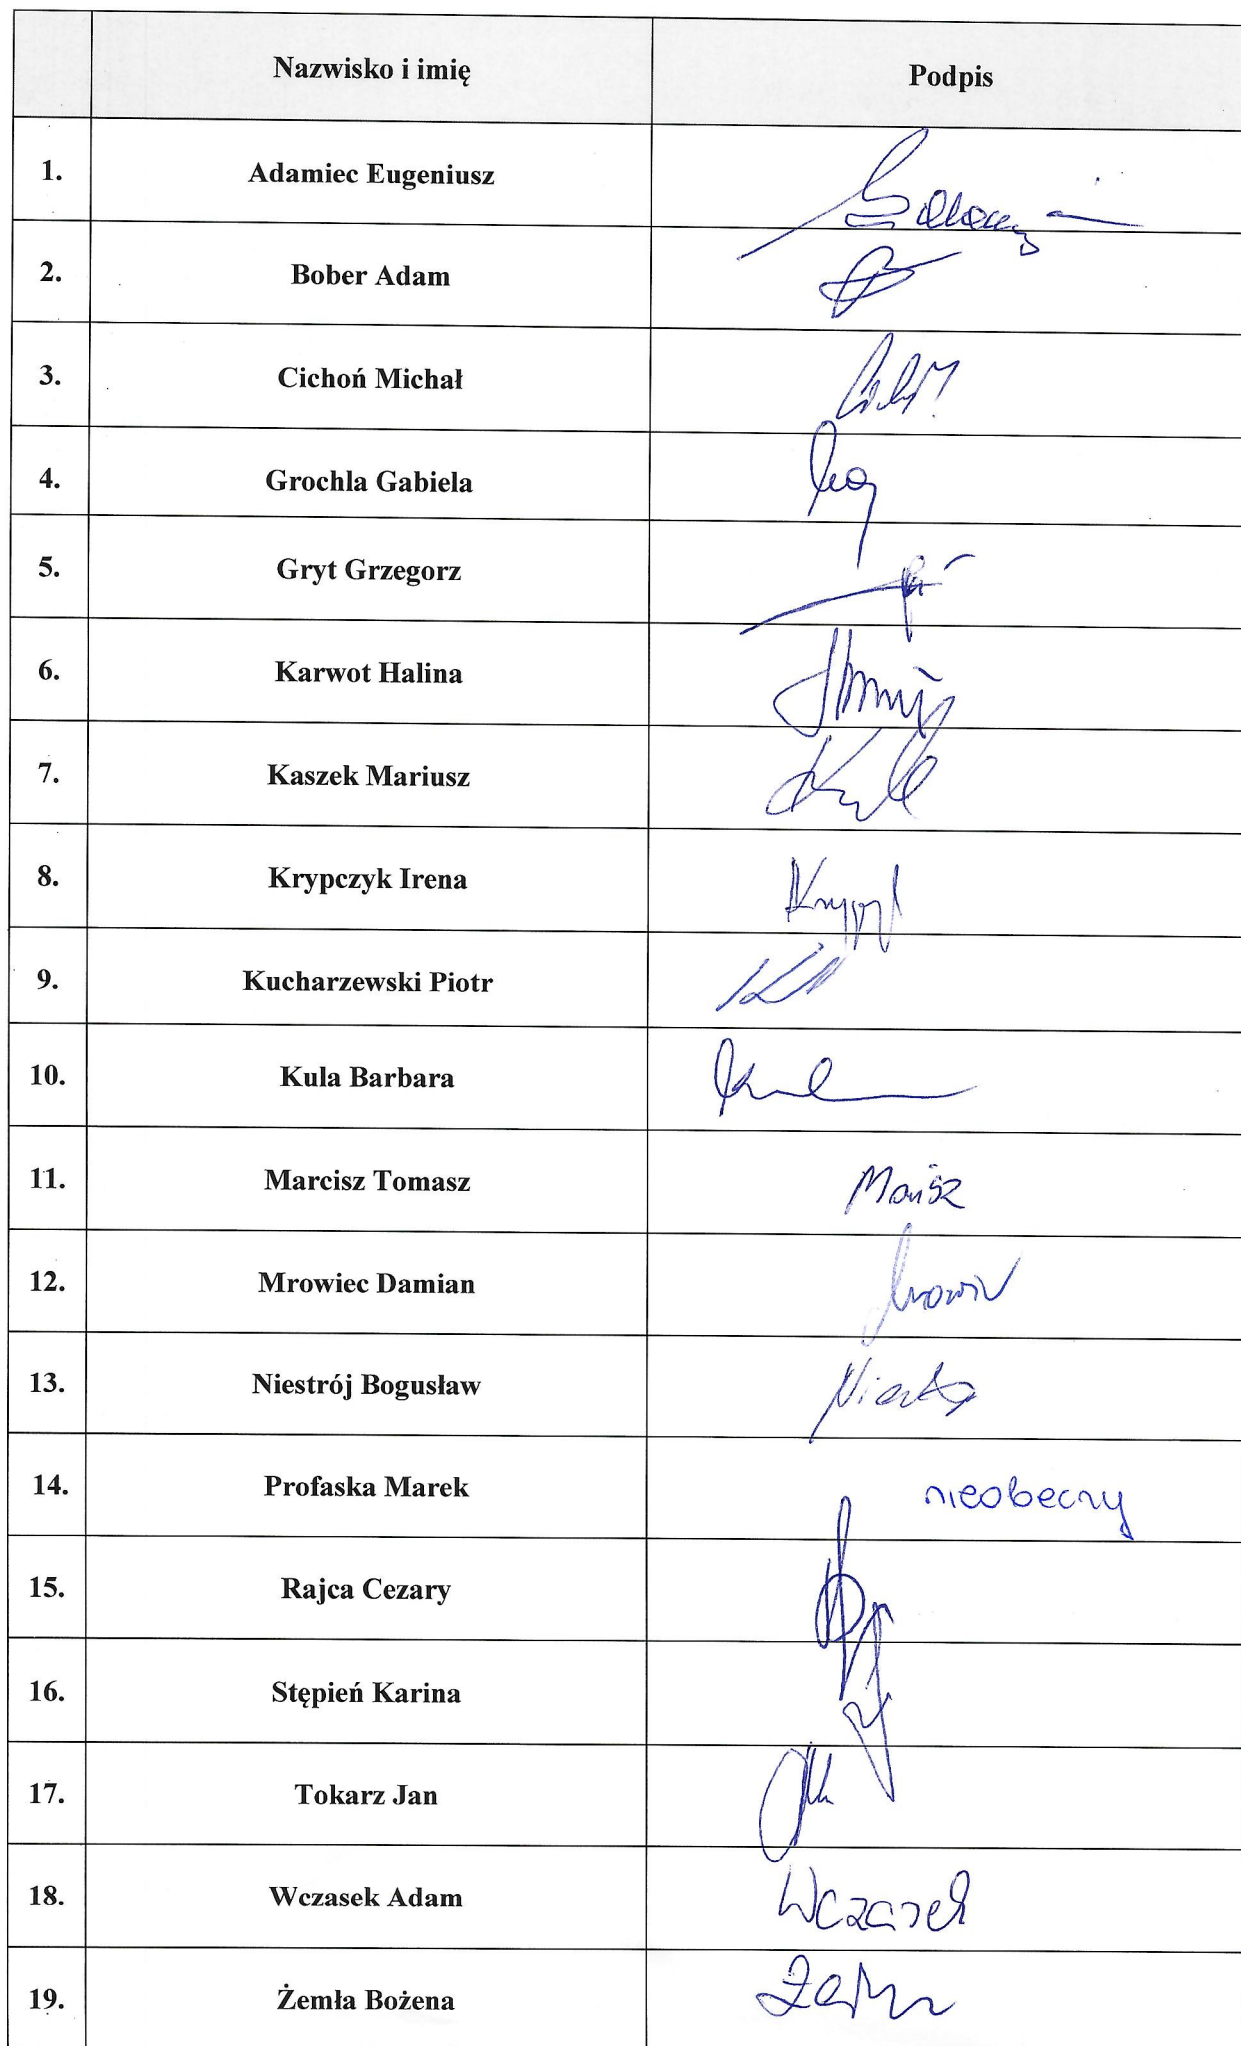 Nazwisko i imię Podpis
1. Adamiec Eugeniusz
2. Bober Adam
3. Cichoń Michał
4. Grochla Gabiela
5. Gryt Grzegorz
6. Karwot Halina
7. Kaszek Mariusz
8. Krypczyk Irena
9. Kucharzewski Piotr
10. Kula Barbara
11. Marcisz Tomasz
12. Mrowiec Damian
13. Niestrój Bogusław
14. Profaska Marek nieobecny
15. Rajca Cezary
16. Stępień Karina
17. Tokarz Jan
18. Wczasek Adam Wczasek
19. Żemła Bożena